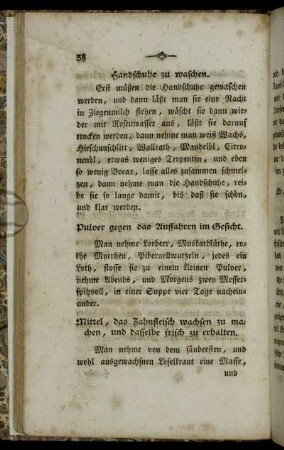 58
Handschuhe zu waschen.
Erst müßen die Handschuhe gewaschen
werden, und dann läßt man sie eine Nacht
in Ziegenmilch stehen, wäscht sie dann wie-
der mit Rosenwasser aus, läßt sie darauf
trocken werden, dann nehme man weiß Wachs,
Hirschunschlitt, Wallrath, Mandelöl, Citro-
nenöhl, etwas weniges Terpentin, und eben
so wenig Borax, lasse alles zusammen schmel-
zen, dann nehme man die Handschuhe, rei-
be sie so lange damit, bis daß sie schön,
und klar werden.
Pulver gegen das Auffahren im Gesicht.
Man nehme Lorbeer, Muskatblüthe, ro-
the Myrrhen, Pibernellwurzeln, jedes ein
Loth, stosse sie zu einem kleinen Pulver,
nehme Abends, und Morgens zwey Messer-
spitzvoll, in einer Suppe vier Tage nachein-
ander.
Mittel, das Zahnfleisch wachsen zu ma-
chen, und dasselbe frisch zu erhalten.
Man nehme von dem säubersten, und
wohl ausgewachsnen Löfelkraut eine Masse,
und